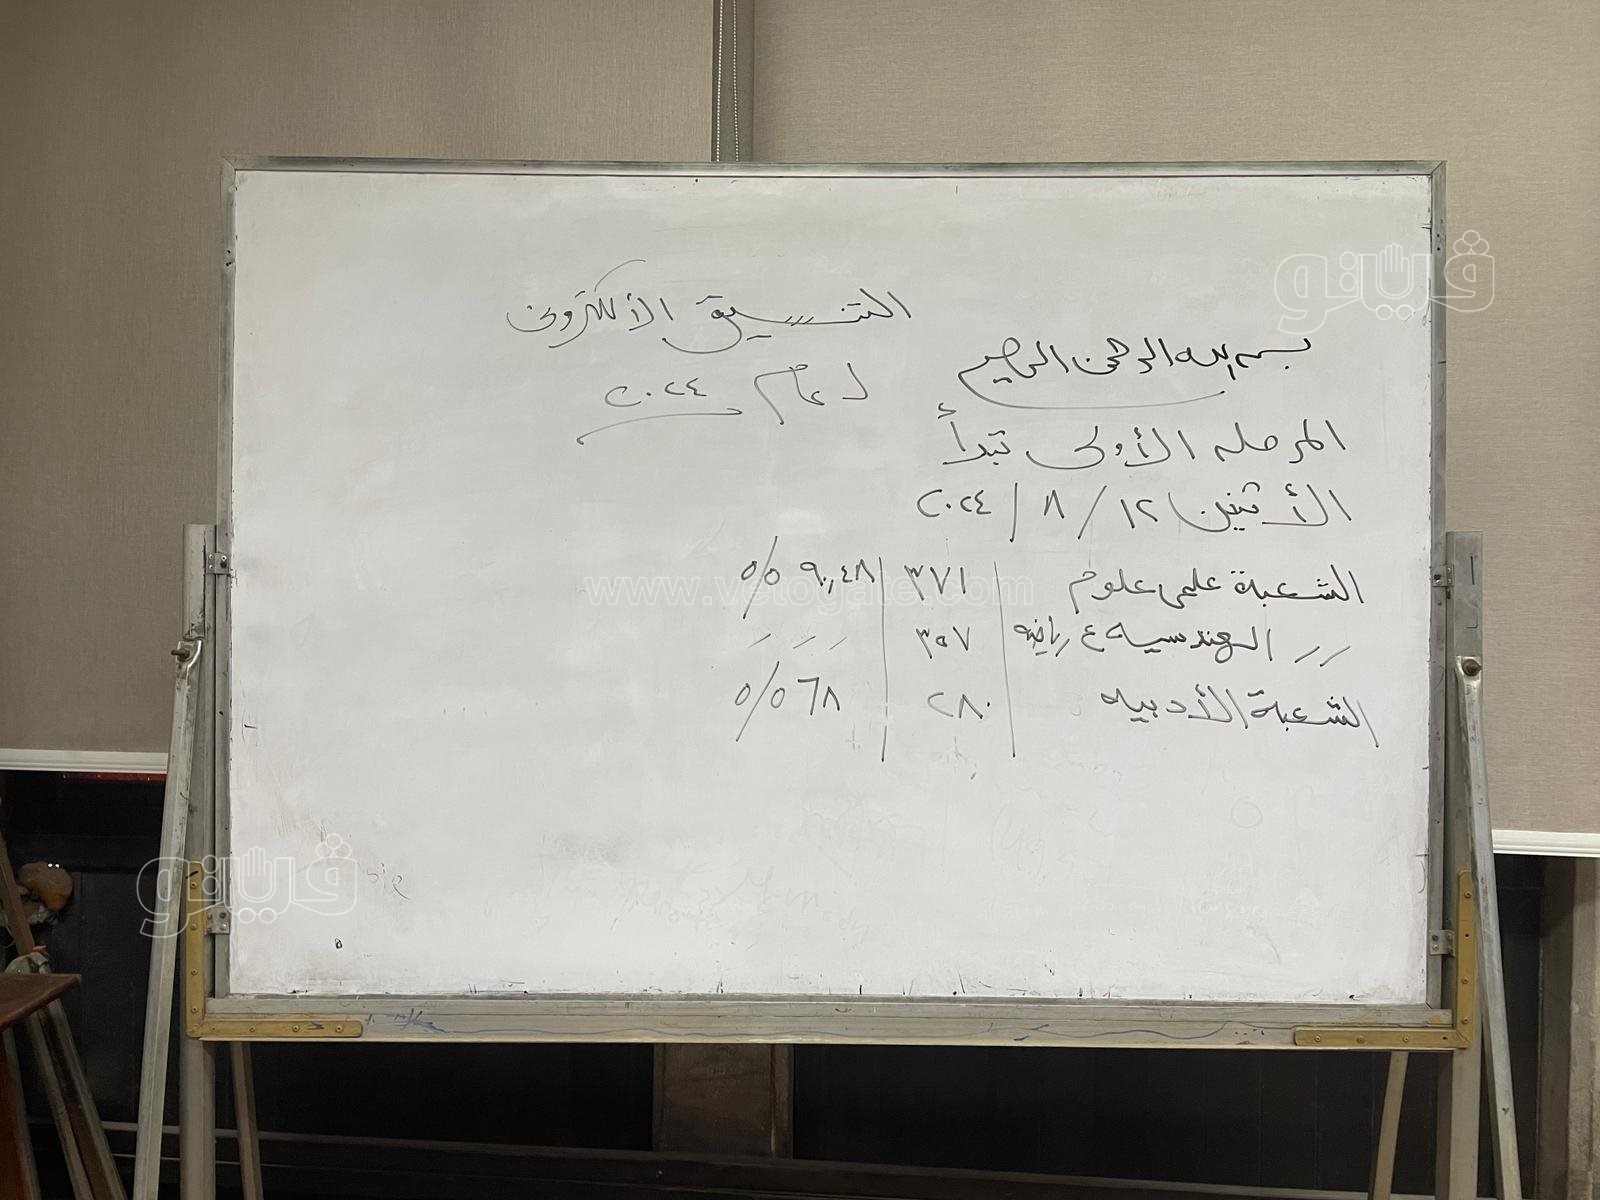 التنسيق الألكترونى
لعام ٢٠٢٤
بسم الله الرحمن الرحيم
المرحله الأولى تبدأ
الأثنين ١٢ / ٨ / ٢٠٢٤
الشعبة علمى علوم | ٣٧١ | ٩٠,٤٨ ٥/٥
〃 الهندسيه ع رياضه | ٣٥٧ | 〃 〃 〃
الشعبة الأدبيه | ٢٨٠ | ٦٨ ٥/٥
فيتو
www.vetogate.com
فيتو